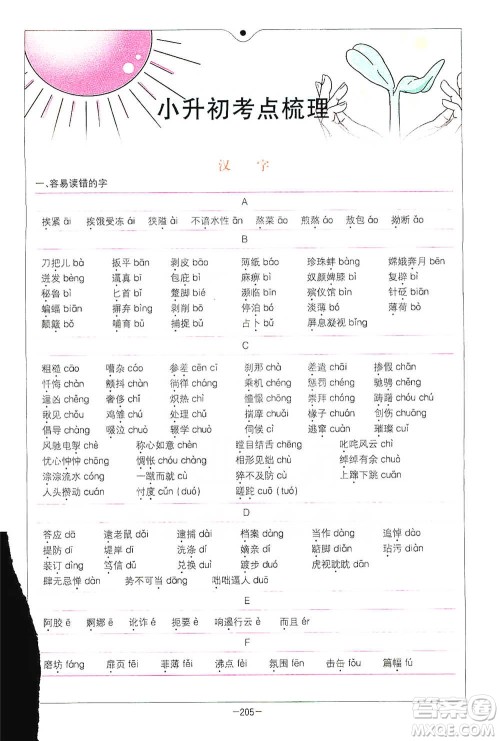 小升初考点梳理
汉 字
一、容易读错的字
A
挨紧 āi 挨饿受冻 ái 狭隘 ài 不谙水性 ān 熬菜 āo 煎熬 áo 敖包 áo 拗断 ǎo
B
刀把儿 bà 扳平 bān 剥皮 bāo 薄纸 báo 珍珠蚌 bàng 嫦娥奔月 bēn
迸发 bèng 包庇 bì 麻痹 bì 奴颜婢膝 bì 复辟 bì
秘鲁 bì 蹩脚 bié 濒临 bīn 殡仪馆 bìn 针砭 biān
蝙蝠 biān 摒弃 bìng 剥削 bō 停泊 bó 薄荷 bò
颠簸 bǒ 哺育 bǔ 捕捉 bǔ 占卜 bǔ 屏息凝视 bǐng
C
粗糙 cāo 嘈杂 cáo 参差 cēn cī 刹那 chà 差遣 chāi 掺假 chān
忏悔 chàn 颤抖 chàn 徜徉 cháng 乘机 chéng 惩罚 chéng 驰骋 chěng
奢侈 chǐ 炽热 chì 憧憬 chōng 崇拜 chóng 踌躇 chóu chú
瞅见 chǒu 鸡雏 chú 处理 chǔ 揣摩 chuǎi 椽子 chuán 创伤 chuāng
倡导 chàng 啜泣 chuò 辍学 chuò 伺候 cì 逃窜 cuàn 璀璨 cuǐ càn
风驰电掣 chè 称心如意 chèn 瞠目结舌 chēng 叱咤风云 chì
忧心忡忡 chōng 惆怅 chóu chàng 相形见绌 chù 绰绰有余 chuò
淙淙流水 cóng 一蹴而就 cù 猝不及防 cù 上蹿下跳 cuān
人头攒动 cuán 忖度 cǔn duó 蹉跎 cuō tuó
D
答应 dā 逮老鼠 dǎi 逮捕 dài 档案 dàng 当做 dàng 追悼 dào
提防 dī 堤岸 dī 洗涤 dí 嫡亲 dí 踮脚 diǎn 玷污 diàn
装订 dìng 笃信 dǔ 句读 dòu 踱步 duó 掇拾 duō
肆无忌惮 dàn 势不可当 dāng 咄咄逼人 duō
E
阿胶 ē 婀娜 ē 讹诈 é 扼要 è 响遏行云 è 而且 ér
F
磨坊 fáng 扉页 fēi 菲薄 fěi 沸点 fèi 氛围 fēn 击缶 fǒu 篇幅 fú
—205—